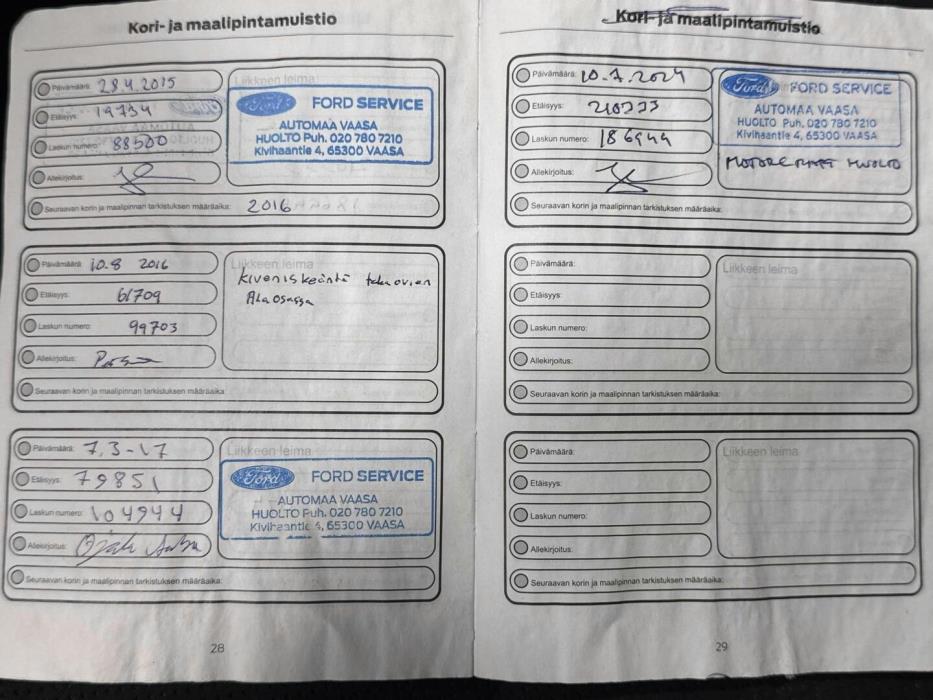 Kori- ja maalipintamuistio
Päivämäärä: 28.4.2015
Liikkeen leima
Etäisyys: 19734
Laskun numero: 88500
Allekirjoitus:
Ford FORD SERVICE
AUTOMAA VAASA
HUOLTO Puh. 020 780 7210
Kivihaantie 4, 65300 VAASA
Seuraavan korin ja maalipinnan tarkistuksen määräaika: 2016
Päivämäärä: 10.8 2016
Etäisyys: 61709
Laskun numero: 99703
Allekirjoitus:
Liikkeen leima
Kiveniskeäntä takaovien
Alaosassa
Seuraavan korin ja maalipinnan tarkistuksen määräaika:
Päivämäärä: 7.3-17
Etäisyys: 79851
Laskun numero: 104944
Allekirjoitus:
Liikkeen leima
Ford FORD SERVICE
AUTOMAA VAASA
HUOLTO Puh. 020 780 7210
Kivihaantie 4, 65300 VAASA
Seuraavan korin ja maalipinnan tarkistuksen määräaika:
28
Kori- ja maalipintamuistio
Päivämäärä: 10.7.2024
Etäisyys: 210233
Laskun numero: 186944
Allekirjoitus:
Ford FORD SERVICE
AUTOMAA VAASA
HUOLTO Puh. 020 780 7210
Kivihaantie 4, 65300 VAASA
MOTORCRAFT HUOLTO
Seuraavan korin ja maalipinnan tarkistuksen määräaika:
Päivämäärä:
Etäisyys:
Laskun numero:
Allekirjoitus:
Liikkeen leima
Seuraavan korin ja maalipinnan tarkistuksen määräaika:
Päivämäärä:
Etäisyys:
Laskun numero:
Allekirjoitus:
Liikkeen leima
Seuraavan korin ja maalipinnan tarkistuksen määräaika:
29